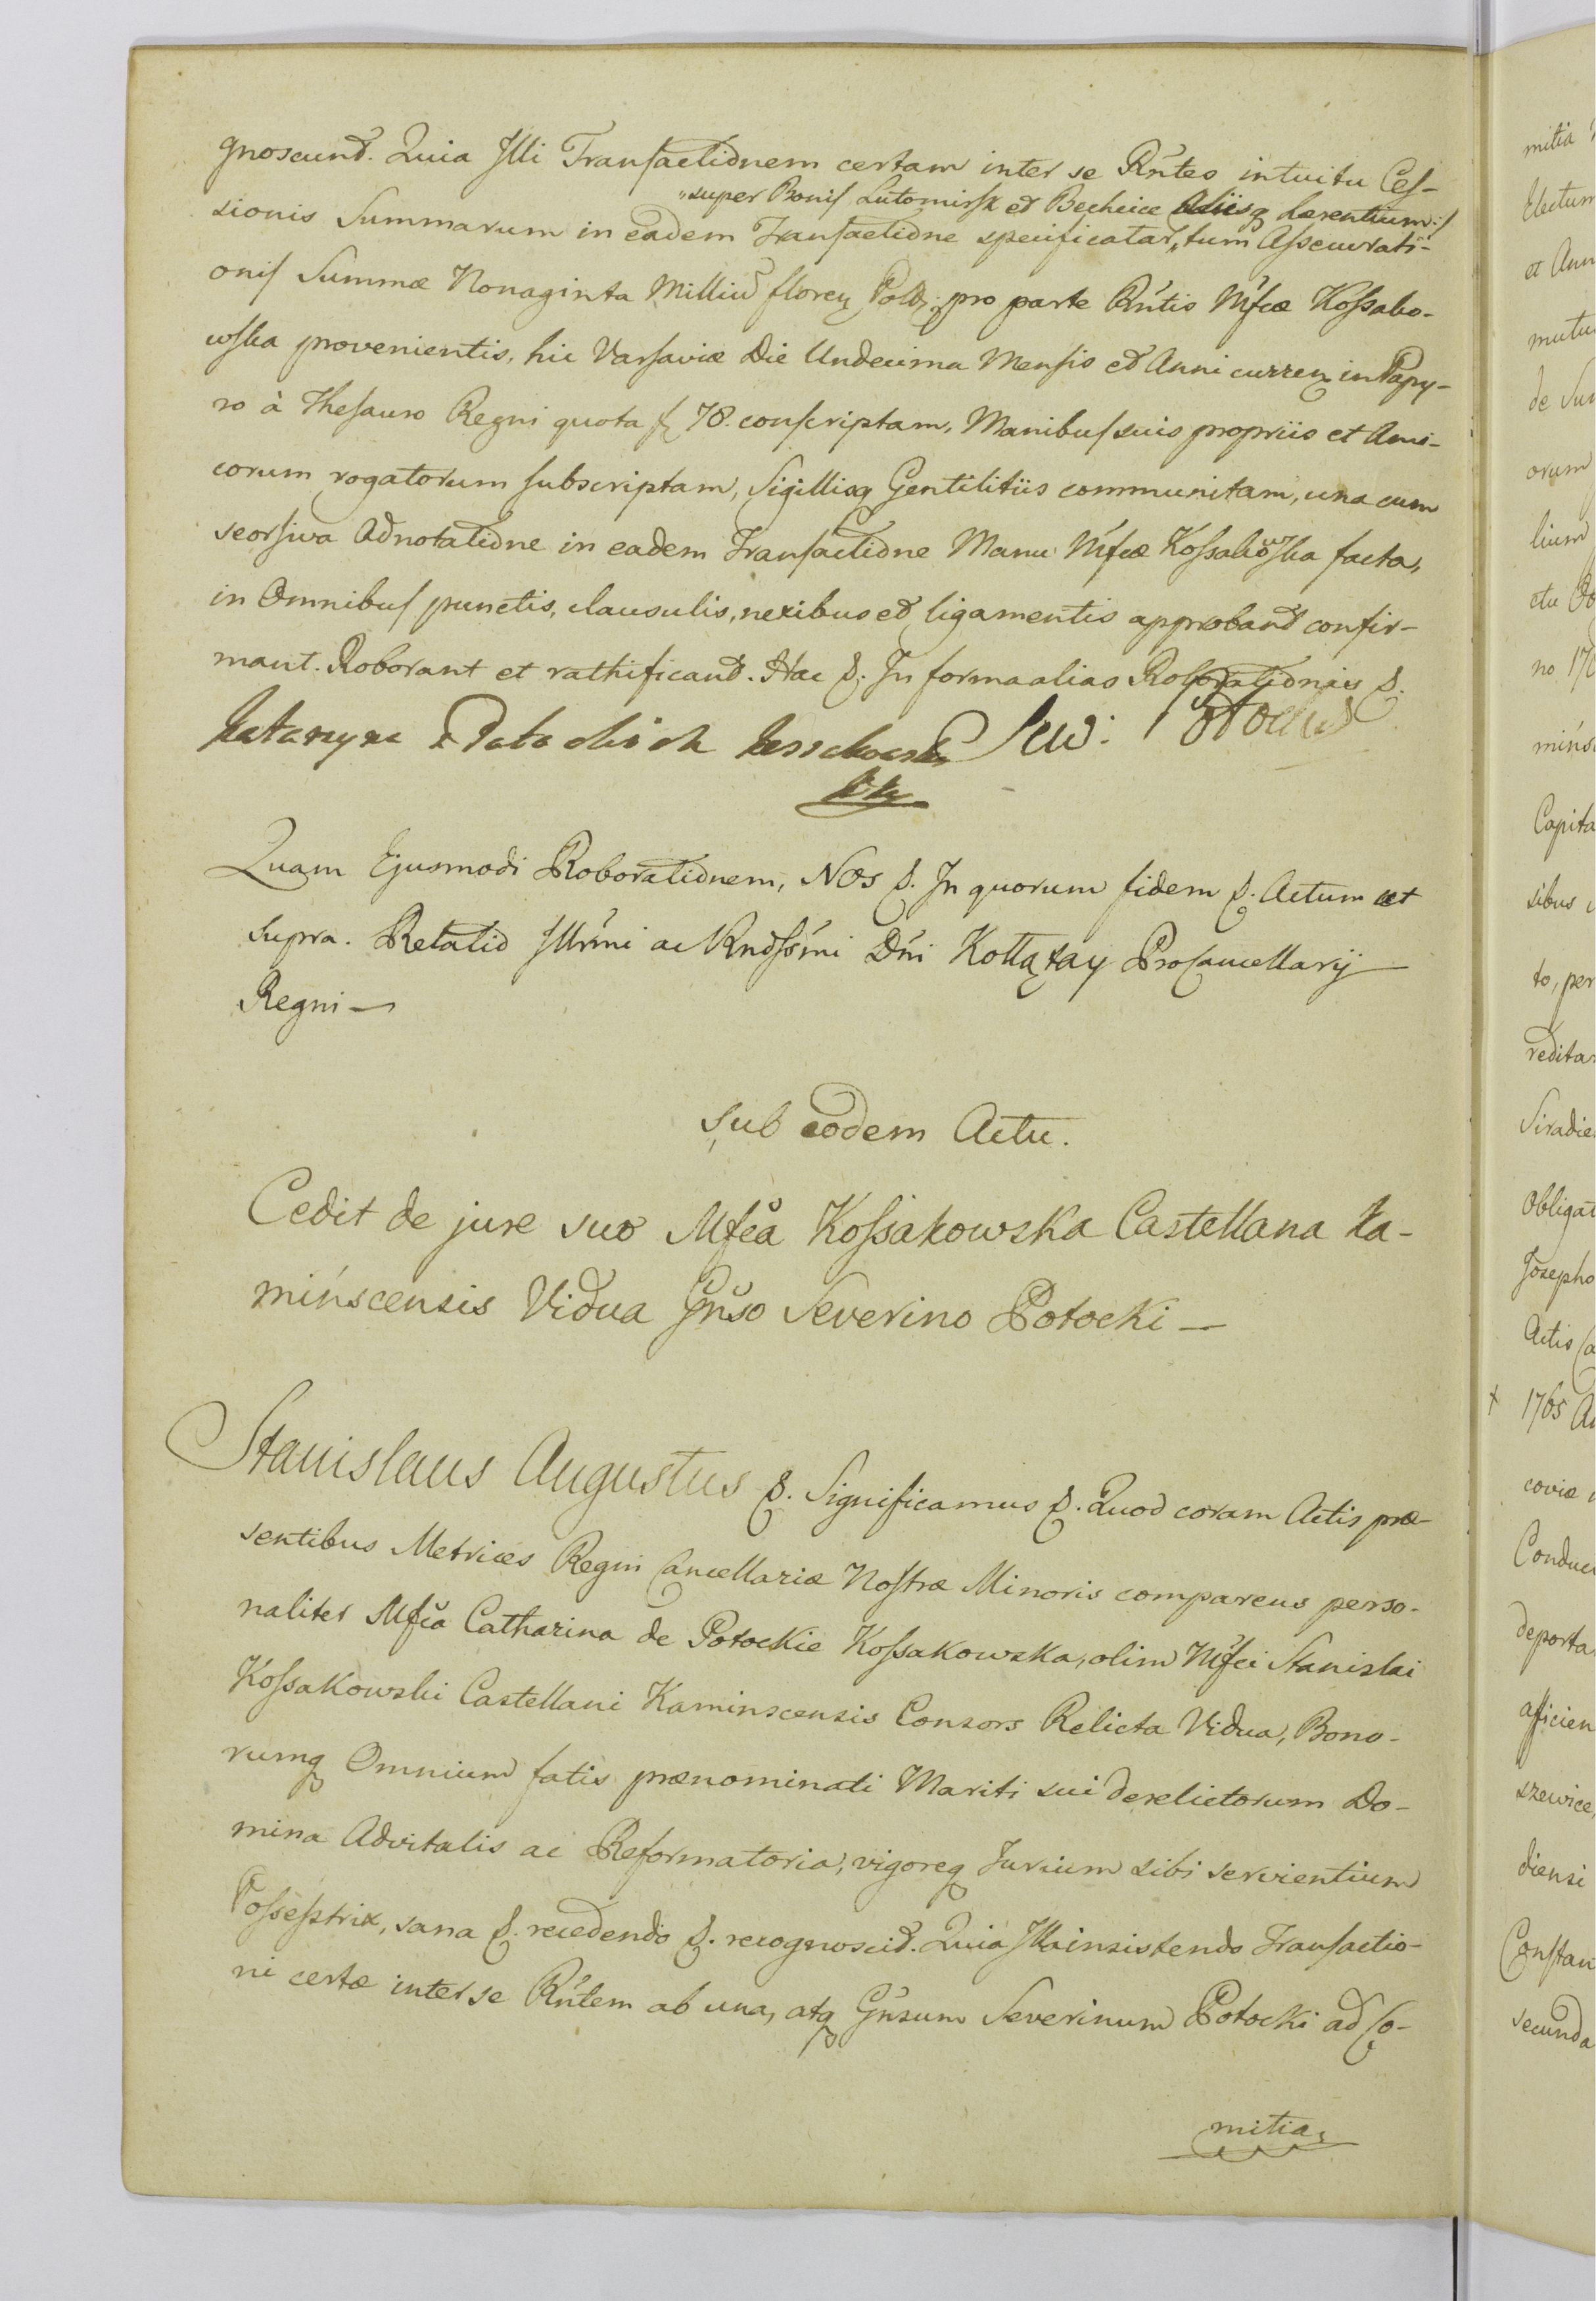 gnoscunt. Quia Illi Transactionem certam inter se Rntes intuitu Ces-
"super Bonis Lutomirsk et Bechcice aliisq haerentium:/
sionis Summarum in eadem Transactione specificatar, "tum Assecurati-
onis Summæ Nonaginta Milliu floren Pold, pro parte Rntis Mfcæ Kossako-
wska provenientis, hic Varsaviæ Die Undecima Mensis et Anni curren in Papy-
ro à Thesauro Regni quota f 78. conscriptam, Manibus suis propriis et Ami-
corum rogatorum subscriptam, Sigillisq Gentilitiis communitam, una cum
seorsiva Adnotatione in eadem Transactione Manu Mfcæ Kossakowska facta,
in Omnibus punctis, clausulis, nexibus et ligamentis approbant confir-
mant. Roborant et rathificant. Hac &. In forma alias Roborationis &.
Katarzyna z Potockich Kossakowska Sew: Potocki
Quam Ejusmodi Roborationem, Nos &. In quorum fidem &. Actum ut
supra. Relatio Illrmi ac Rndssmi Dni Kołłątay ProCancellarij
Regni —
Sub eodem Actu.
Cedit de jure suo Mfca Kossakowska Castellana Ka-
mińscensis Vidua Gnso Severino Potocki —
Stanislaus Augustus &. Significamus &. Quod coram Actis præ-
sentibus Metrices Regni Cancellariæ Nostræ Minoris comparens perso-
naliter Mfca Catharina de Potockie Kossakowska, olim Mfci Stanislai
Kossakowski Castellani Kaminscensis Consors Relicta Vidua, Bono-
rumq Omnium fatis prænominati Mariti sui derelictorum Do-
mina Advitalis ac Reformatoria, vigoreq Jurium sibi servientium
Possestrix, sana &. recedendo &. recognoscit. Quia Illa insistendo Transactio-
ni certæ inter se Rntem ab una, atq Gnsum Severinum Potocki ad Co-
mitia,
mitia
Electum
et Ann
mutu
de Su
orum
lium
ctu
no 17
mińs
Capita
sibus
to, per
redita
Siradie
Obligat
Josepho
Actis Ca
+ 1765 A
coviæ
Conduc
deporta
afficien
szewice
diensi
Constan
secunda